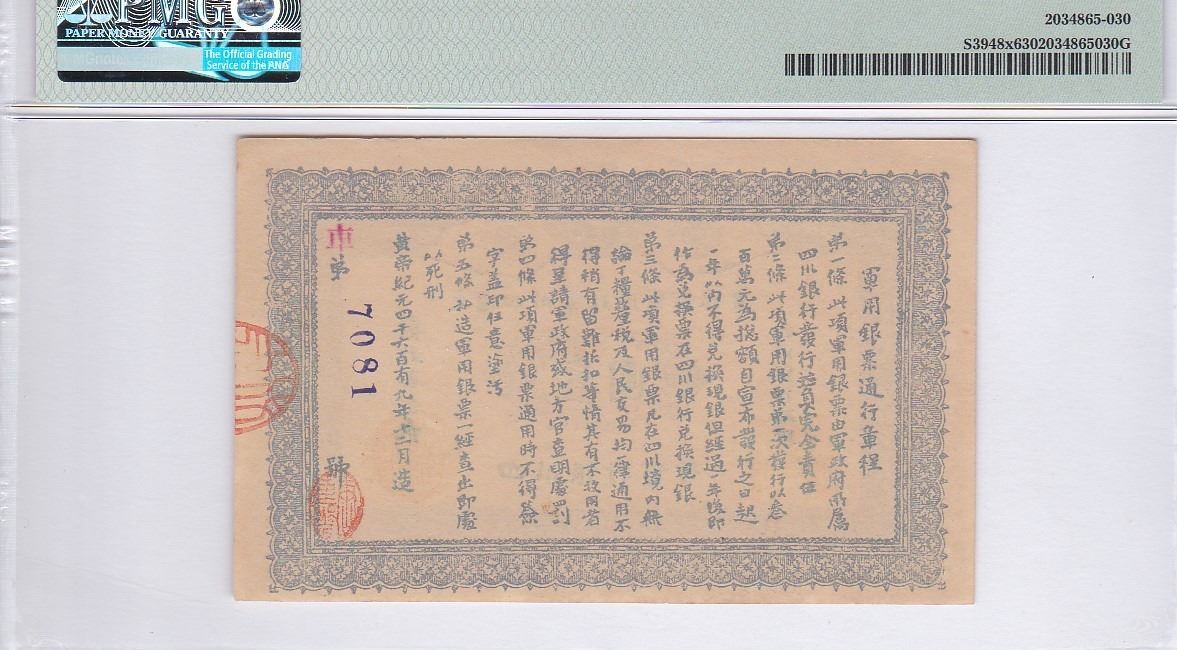 PMG
PAPER MONEY GUARANTY
The Official Grading
Service of the ANA
2034865-030
S3948x6302034865030G
軍用銀票通行章程
第一條 此項軍用銀票由軍政府所屬
四川銀行發行並負完全責任
第二條 此項軍用銀票第一次發行以叁
百萬元為總額自宣布發行之日起
一年以內不得兌換現銀但經過一年後即
作為兌換票在四川銀行兌換現銀
第三條 此項軍用銀票凡在四川境內無
論丁糧釐稅及人民交易均一律通用不
得稍有留難折扣等情其有不收用者
得呈請軍政府或地方官查明處罰
第四條 此項軍用銀票通用時不得
字蓋印任意塗污
第五條 造軍用銀票一經查出即處
以死刑
黃帝紀元四千六百有九年十二月造
第
7081
號